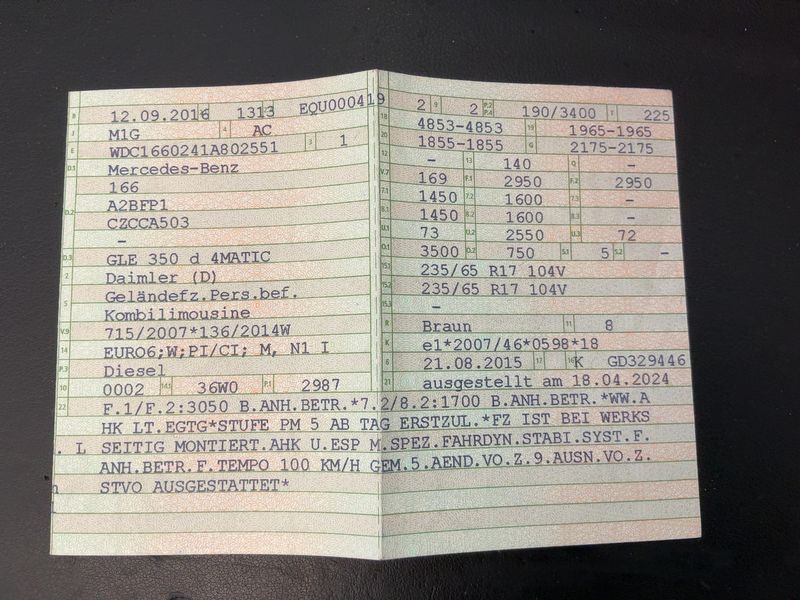 B 12.09.2016 1313 EQU000419
J M1G 4 AC
E WDC1660241A802551 3 1
D.1 Mercedes-Benz
166
D.2 A2BFP1
CZCCA503
–
D.3 GLE 350 d 4MATIC
2 Daimler (D)
5 Geländefz.Pers.bef.
Kombilimousine
V.9 715/2007*136/2014W
14 EURO6;W;PI/CI; M, N1 I
P.3 Diesel
10 0002 14.1 36W0 P.1 2987
2 9 2 P.2 P.4 190/3400 T 225
18 4853-4853 19 1965-1965
20 1855-1855 G 2175-2175
12 – 13 140 Q –
V.7 169 F.1 2950 F.2 2950
7.1 1450 7.2 1600 7.3 –
8.1 1450 8.2 1600 8.3 –
U.1 73 U.2 2550 U.3 72
O.1 3500 O.2 750 S.1 5 S.2 –
15.1 235/65 R17 104V
15.2 235/65 R17 104V
15.3 –
R Braun 11 8
K e1*2007/46*0598*18
6 21.08.2015 17 16 K GD329446
21 ausgestellt am 18.04.2024
22 F.1/F.2:3050 B.ANH.BETR.*7.2/8.2:1700 B.ANH.BETR.*WW.A
HK LT.EGTG*STUFE PM 5 AB TAG ERSTZUL.*FZ IST BEI WERKS
. L SEITIG MONTIERT.AHK U.ESP M.SPEZ.FAHRDYN.STABI.SYST.F.
ANH.BETR.F.TEMPO 100 KM/H GEM.5.AEND.VO.Z.9.AUSN.VO.Z.
STVO AUSGESTATTET*